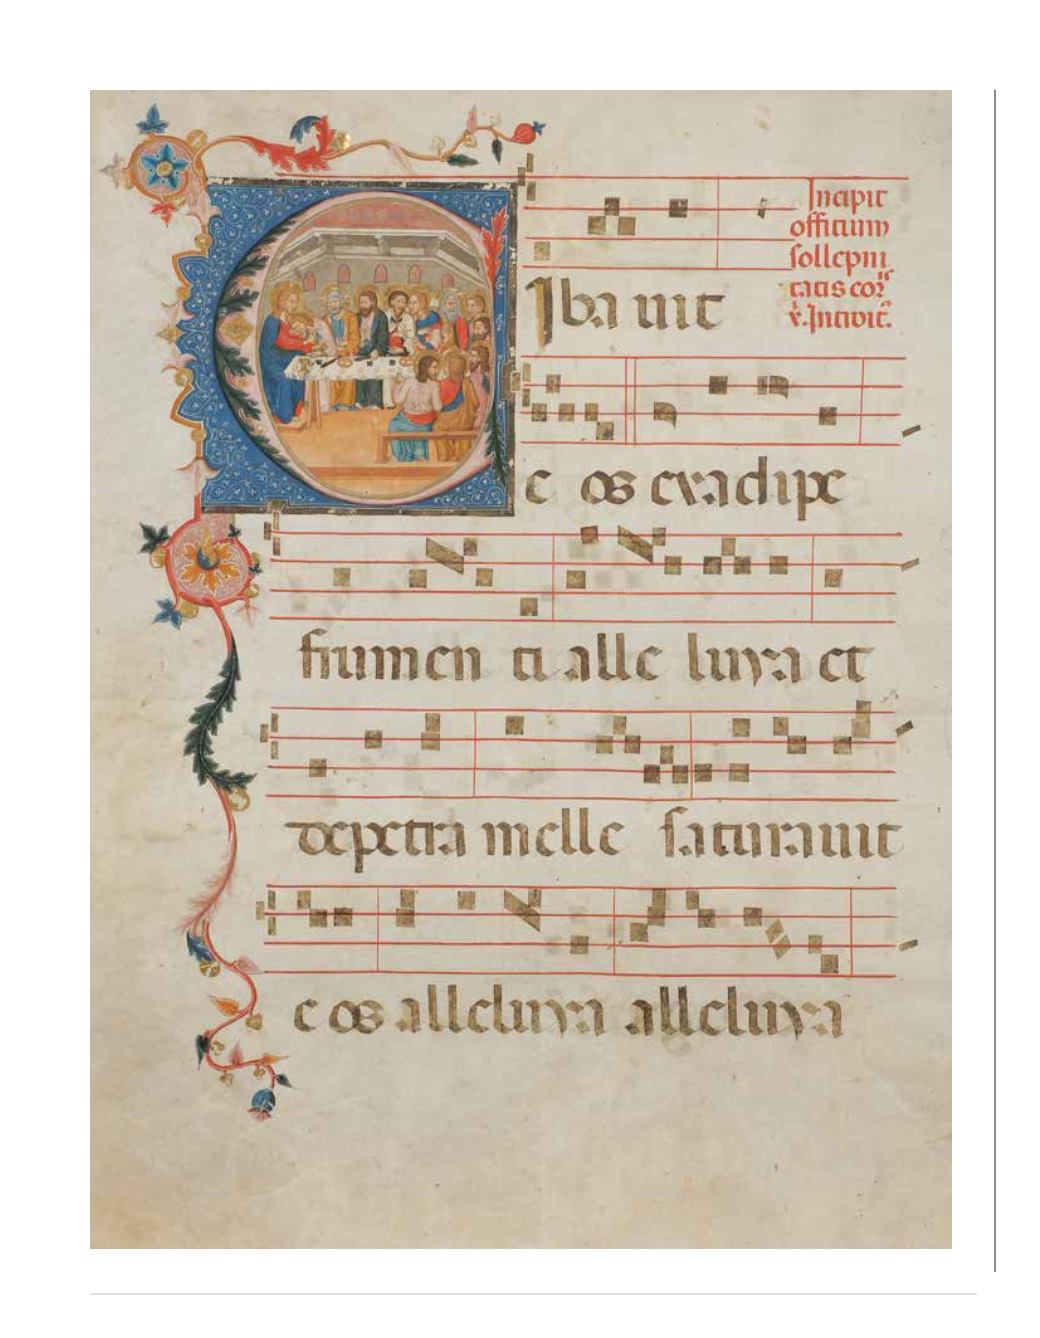 Incipit
officium
sollepni
tatis cor̾
v̾. Introit̾.
CIba uit
e os exadipe
frumen ti alle luya et
depetra melle saturauit
e os alleluya alleluya